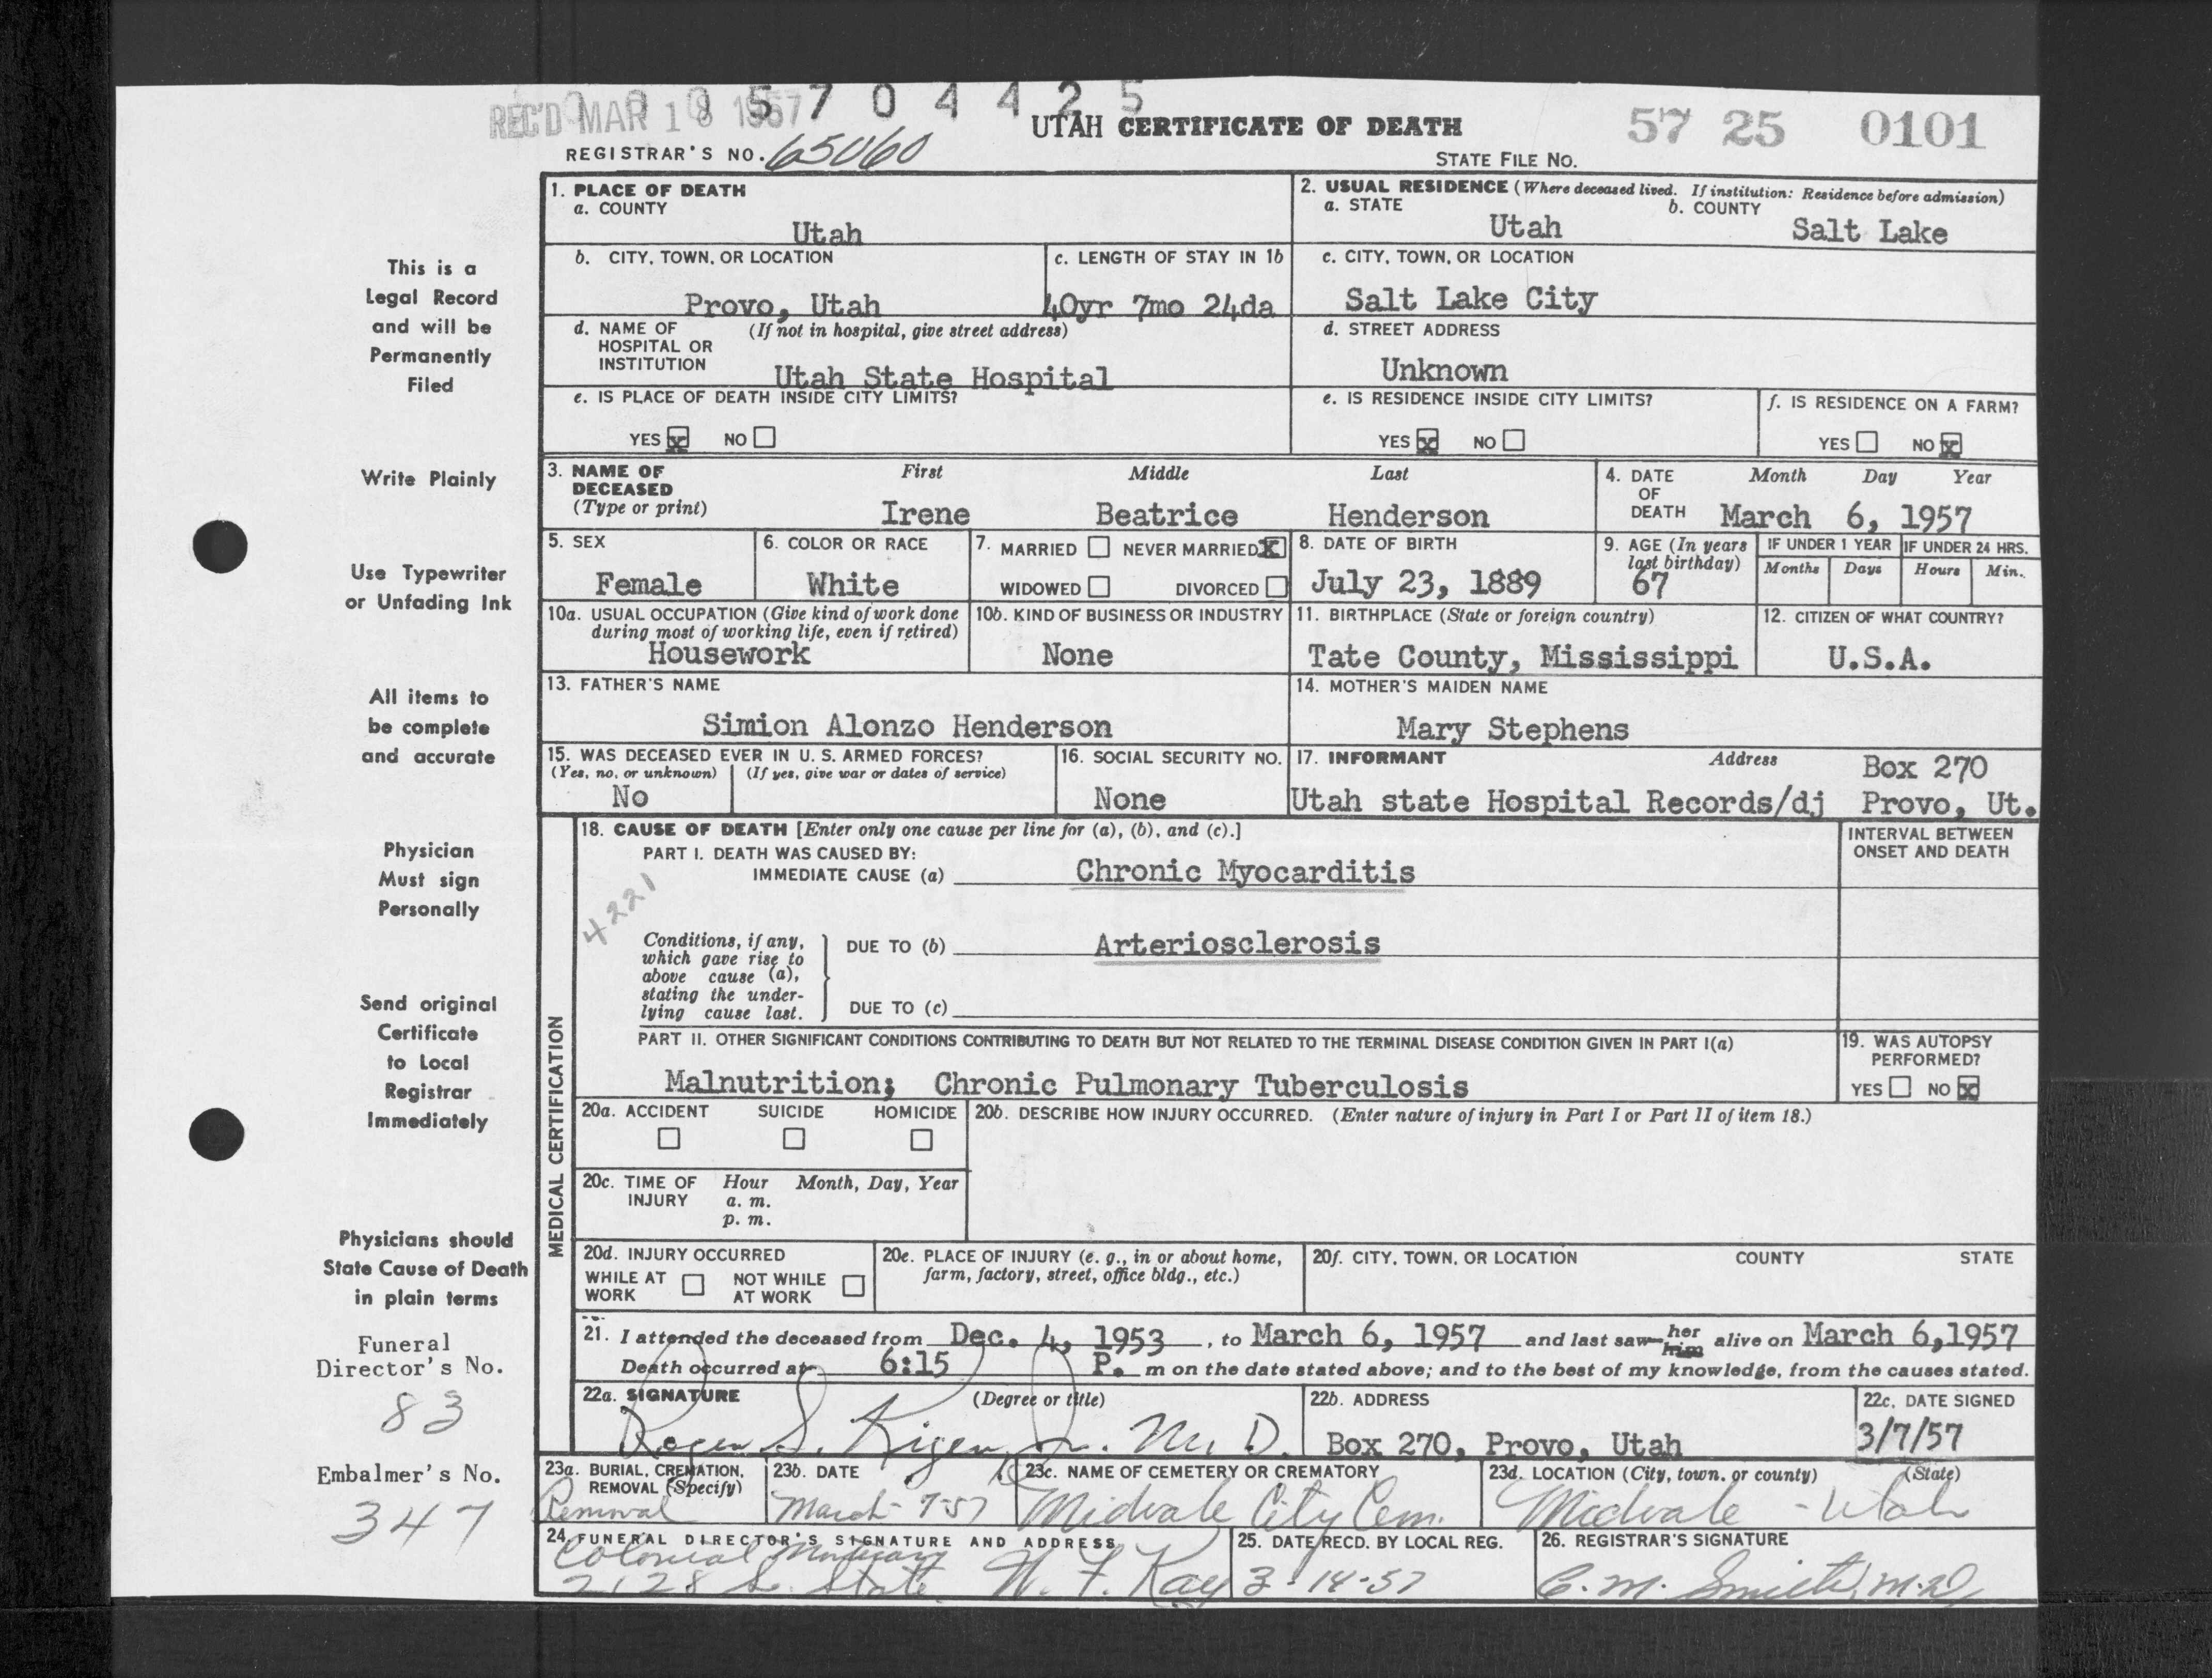 REC'D MAR 18 1957
5 7 0 4 4 2 5
UTAH CERTIFICATE OF DEATH
57 25 0101
REGISTRAR'S NO. 65060
STATE FILE NO.
1. PLACE OF DEATH
a. COUNTY
Utah
2. USUAL RESIDENCE (Where deceased lived. If institution: Residence before admission)
a. STATE
Utah
b. COUNTY
Salt Lake
b. CITY, TOWN, OR LOCATION
Provo, Utah
c. LENGTH OF STAY IN 1b
40yr 7mo 24da
c. CITY, TOWN, OR LOCATION
Salt Lake City
d. NAME OF HOSPITAL OR INSTITUTION
(If not in hospital, give street address)
Utah State Hospital
d. STREET ADDRESS
Unknown
e. IS PLACE OF DEATH INSIDE CITY LIMITS?
YES x NO
e. IS RESIDENCE INSIDE CITY LIMITS?
YES x NO
f. IS RESIDENCE ON A FARM?
YES NO x
3. NAME OF DECEASED
(Type or print)
First Middle Last
Irene Beatrice Henderson
4. DATE OF DEATH
Month Day Year
March 6, 1957
5. SEX
Female
6. COLOR OR RACE
White
7. MARRIED NEVER MARRIED X
WIDOWED DIVORCED
8. DATE OF BIRTH
July 23, 1889
9. AGE (In years last birthday)
67
IF UNDER 1 YEAR
Months Days
IF UNDER 24 HRS.
Hours Min.
10a. USUAL OCCUPATION (Give kind of work done
during most of working life, even if retired)
Housework
10b. KIND OF BUSINESS OR INDUSTRY
None
11. BIRTHPLACE (State or foreign country)
Tate County, Mississippi
12. CITIZEN OF WHAT COUNTRY?
U.S.A.
13. FATHER'S NAME
Simion Alonzo Henderson
14. MOTHER'S MAIDEN NAME
Mary Stephens
15. WAS DECEASED EVER IN U. S. ARMED FORCES?
(Yes, no, or unknown) (If yes, give war or dates of service)
No
16. SOCIAL SECURITY NO.
None
17. INFORMANT Address
Box 270
Utah state Hospital Records/dj Provo, Ut.
MEDICAL CERTIFICATION
18. CAUSE OF DEATH [Enter only one cause per line for (a), (b), and (c).]
INTERVAL BETWEEN
ONSET AND DEATH
PART I. DEATH WAS CAUSED BY:
IMMEDIATE CAUSE (a) Chronic Myocarditis
4221
Conditions, if any,
which gave rise to
above cause (a),
stating the under-
lying cause last.
DUE TO (b) Arteriosclerosis
DUE TO (c)
PART II. OTHER SIGNIFICANT CONDITIONS CONTRIBUTING TO DEATH BUT NOT RELATED TO THE TERMINAL DISEASE CONDITION GIVEN IN PART I(a)
Malnutrition; Chronic Pulmonary Tuberculosis
19. WAS AUTOPSY
PERFORMED?
YES NO x
20a. ACCIDENT SUICIDE HOMICIDE
20b. DESCRIBE HOW INJURY OCCURRED. (Enter nature of injury in Part I or Part II of item 18.)
20c. TIME OF INJURY
Hour Month, Day, Year
a. m.
p. m.
20d. INJURY OCCURRED
WHILE AT WORK
NOT WHILE AT WORK
20e. PLACE OF INJURY (e. g., in or about home,
farm, factory, street, office bldg., etc.)
20f. CITY, TOWN, OR LOCATION COUNTY STATE
21. I attended the deceased from Dec. 4, 1953, to March 6, 1957 and last saw her him alive on March 6,1957
Death occurred at 6:15 P. m on the date stated above; and to the best of my knowledge, from the causes stated.
22a. SIGNATURE (Degree or title)
M. D.
22b. ADDRESS
Box 270, Provo, Utah
22c. DATE SIGNED
3/7/57
23a. BURIAL, CREMATION,
REMOVAL (Specify)
Removal
23b. DATE
March 7-57
23c. NAME OF CEMETERY OR CREMATORY
Midvale City Cem.
23d. LOCATION (City, town, or county) (State)
Midvale - Utah
24. FUNERAL DIRECTOR'S SIGNATURE AND ADDRESS
Colonial Mortuary
2128 S. State W. F. Kay
25. DATE RECD. BY LOCAL REG.
3-14-57
26. REGISTRAR'S SIGNATURE
C. M. Smith, M.D.
This is a
Legal Record
and will be
Permanently
Filed
Write Plainly
Use Typewriter
or Unfading Ink
All items to
be complete
and accurate
Physician
Must sign
Personally
Send original
Certificate
to Local
Registrar
Immediately
Physicians should
State Cause of Death
in plain terms
Funeral
Director's No.
83
Embalmer's No.
347